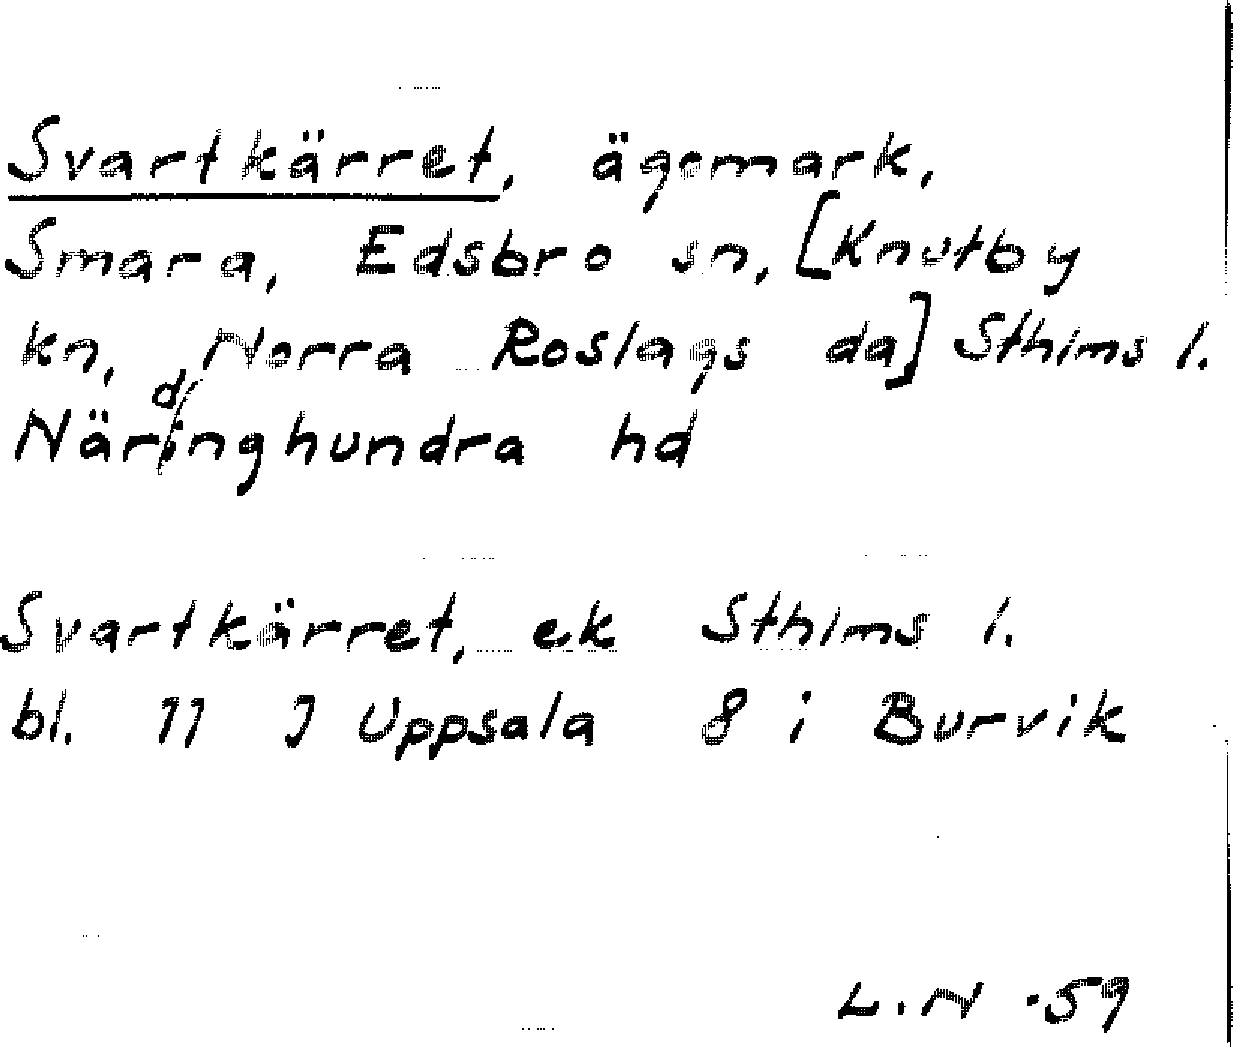 Svartkärret, ägomark,
Smara, Edsbro sn, [Knutby
kn, Norra Roslags da] Sthlms l.
Närdinghundra hd
Svartkärret, ek Sthlms l.
bl. 11 J Uppsala 8 i Burvik
L.N -59